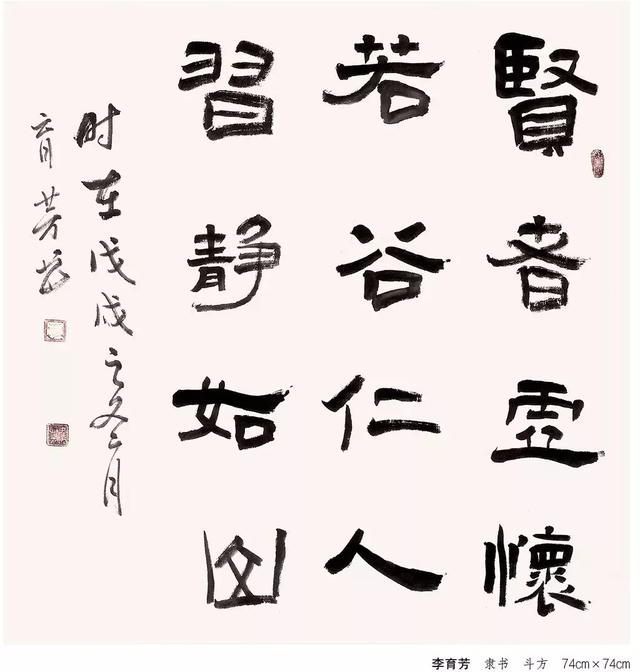 賢者虛懷
若谷仁人
習靜如山
时在戊戌之冬月
育芳书
李育芳 隶书 斗方 74cm×74cm